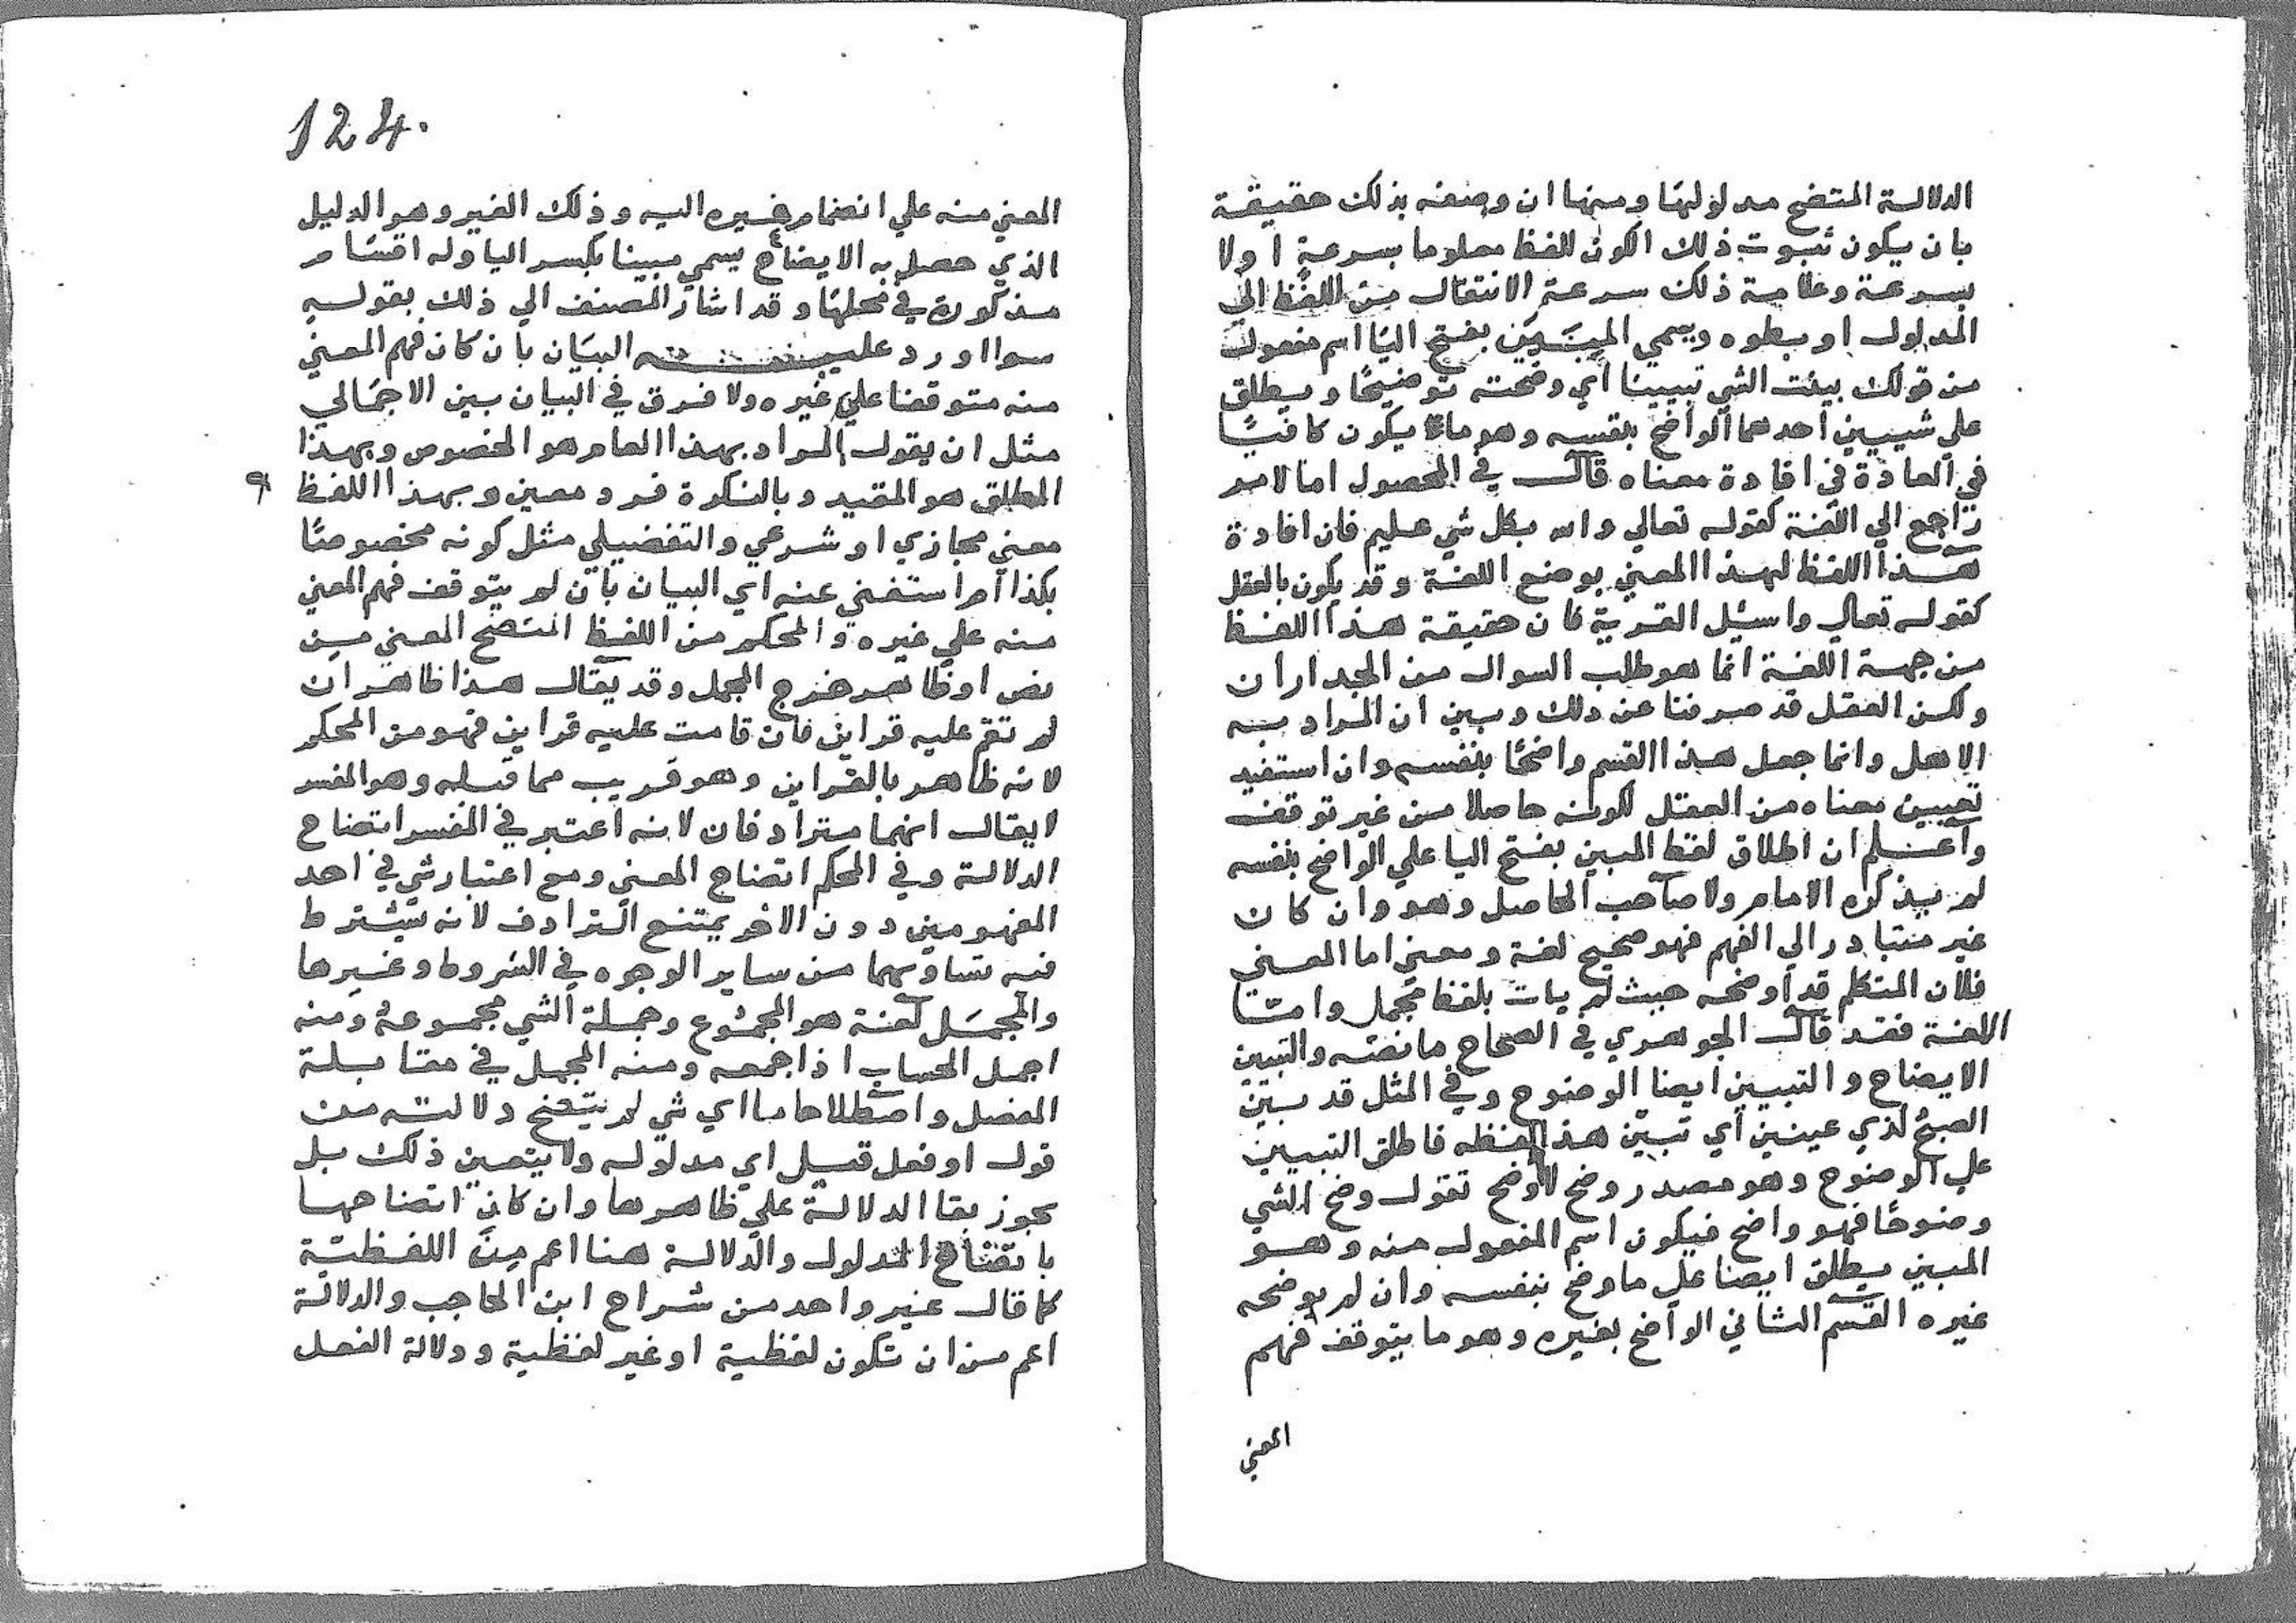 الدلالة المتضح مدلولها ومنها ان وصفه بذلك حقيقة
بان يكون ثبوت ذلك الكون للفظ معلوما بسرعة اولا
بسرعة وعلامة ذلك سرعة الانتقال من اللفظ الي
المدلول او بطوه ويسمي المبيَّن بفتح اليا اسم مفعول
من قولك بينت الشي تبيينا أي وضحته توضيحًا ويطلق
علي شييين احدهما الواضح بنفسه وهو ما يكون كافيًا
في العادة في افادة معناه قال في المحصول اما لامر
راجع الي اللغة كقوله تعالي والله بكل شي عليم فان افادة
هذا اللفظ لهذا المعني بوضع اللغة وقد يكون بالعقل
كقوله تعالي واسئل القرية فان حقيقة هذا اللفظ
من جهة اللغة انما هو طلب السوال من الجدران
ولكن العقل قد صرفنا عن ذلك وبين ان المراد به
الاهل وانما جعل هذا القسم واضحًا بنفسه وان استفيد
تعيين معناه من العقل لكونه حاصلا من غير توقف
واعلم ان اطلاق لفظ المبين بفتح اليا علي الواضح بنفسه
لم يذكره الامام ولا صاحب الحاصل وهو وان كان
غير متبادر الي الفهم فهو صحيح لغة ومعني اما المعني
فلان المتكلم قد أوضحه حيث لم يات بلفظ مجمل وامّا
اللغة فقد قال الجوهري في الصحاح ما نصّه والتبيين
الايضاح والتبيين ايضا الوضوح وفي المثل قد بيّن
الصبحُ لذي عينين أي تبيّن هذا لفظه فاطلق التبيين
علي الوضوح وهو مصدر وضح لا أوضح تقول وضح الشي
وضوحًا فهو واضح فيكون اسم المفعول منه وهو
المبين يطلق ايضا علي ما وضح بنفسه وان لم يوضحه
غيره القسم الثاني الواضح بغيره وهو ما يتوقف فهم
المعني
124.
المعني منه علي انضمام غيره اليه وذلك الغير وهو الدليل
الذي حصل به الايضاح يسمي مبينا بكسر اليا وله اقسام
مذكورة في محلها وقد اشار المصنف الي ذلك بقوله
سوا اورد عليه البيان بأن كان فهم المعني
منه متوقفا علي غيره ولا فرق في البيان بين الاجمالي
مثل ان يقول المراد بهذا العام هو الخصوص وبهذا
المطلق هو المقيد وبالنكرة فرد معين وبهذا اللفظ
معني مجازي او شرعي والتفضيلي مثل كونه مخصوصًا
بكذا أم استغني عنه اي البيان بأن لم يتوقف فهم المعني
منه علي غيره والمحكم من اللفظ المتضح المعني من
نص او ظاهر خرج المجمل وقد يقال هذا ظاهر ان
لم تقم عليه قراين فان قامت عليه قراين فهو من المحكم
لانه ظاهر بالقراين وهو قريب مما قبله وهو المفسر
لا يقال انهما مترادفان لانه اعتبر في المفسر اتضاح
الدلالة وفي المحكم اتضاح المعني ومع اعتبار شي في احد
المفهومين دون الاخر يمتنع الترادف لانه يشترط
فيه تساويهما من ساير الوجوه في الشروط وغيرها
والمجمَل لغة هو المجموع وجملة الشي مجموعهُ ومنه
اجمل الحساب اذا جمعه ومنه المجمل في مقابلة
المفصل واصطلاحا ما اي شي لم يتضح دلالته من
قول او فعل قيل اي مدلوله ولا يتعين ذلك بل
يجوز بقا الدلالة علي ظاهرها وان كان اتضاحها
باتضاح المدلول والدلالة هنا اعم مِن اللفظيّة
كما قال غير واحد من شراح ابن الحاجب والدلالة
اعم من ان تكون لفظية او غير لفظية ودلالة الفعل